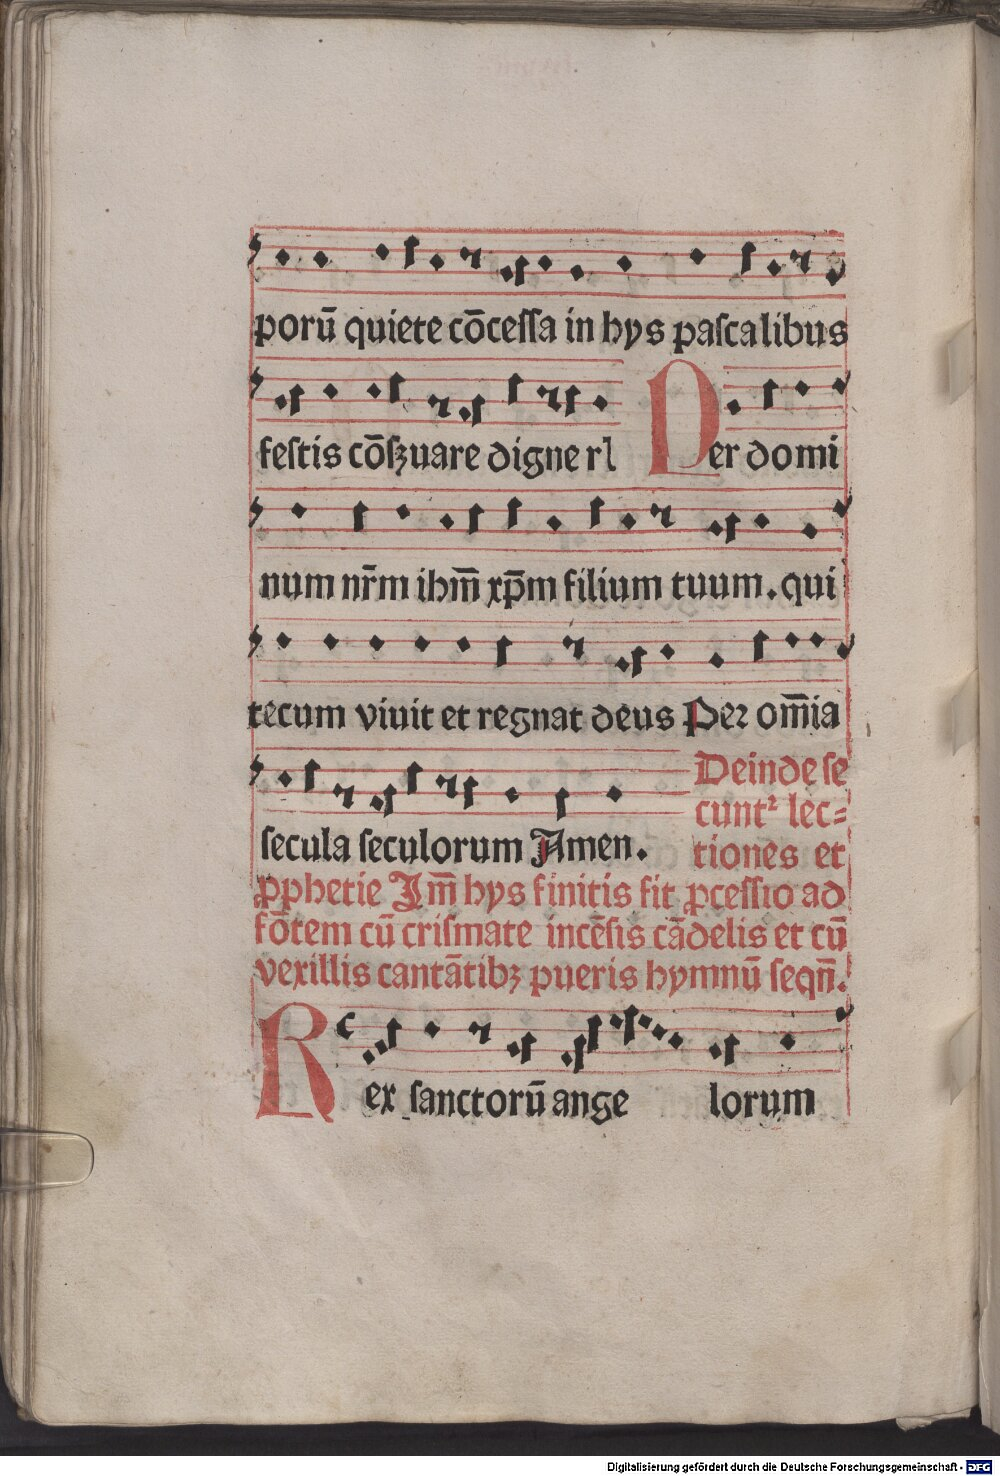 porū quiete cōcessa in hys pascalibus
festis cōsꝫuare digne rl Per domi
num nr̄m ihm̄ xp̄m filium tuum. qui
tecum viuit et regnat deus Per om̄ia
secula seculorum Amen.
Deinde se
cuntᷣ lec-
tiones et
ꝓphetie Im̄ hys finitis fit ꝓcessio ad
fōtem cū crismate incēsis cādelis et cū
vexillis cantātibꝫ pueris hymnū seqn̄.
Rex sanctorū ange lorum
Digitalisierung gefördert durch die Deutsche Forschungsgemeinschaft - DFG